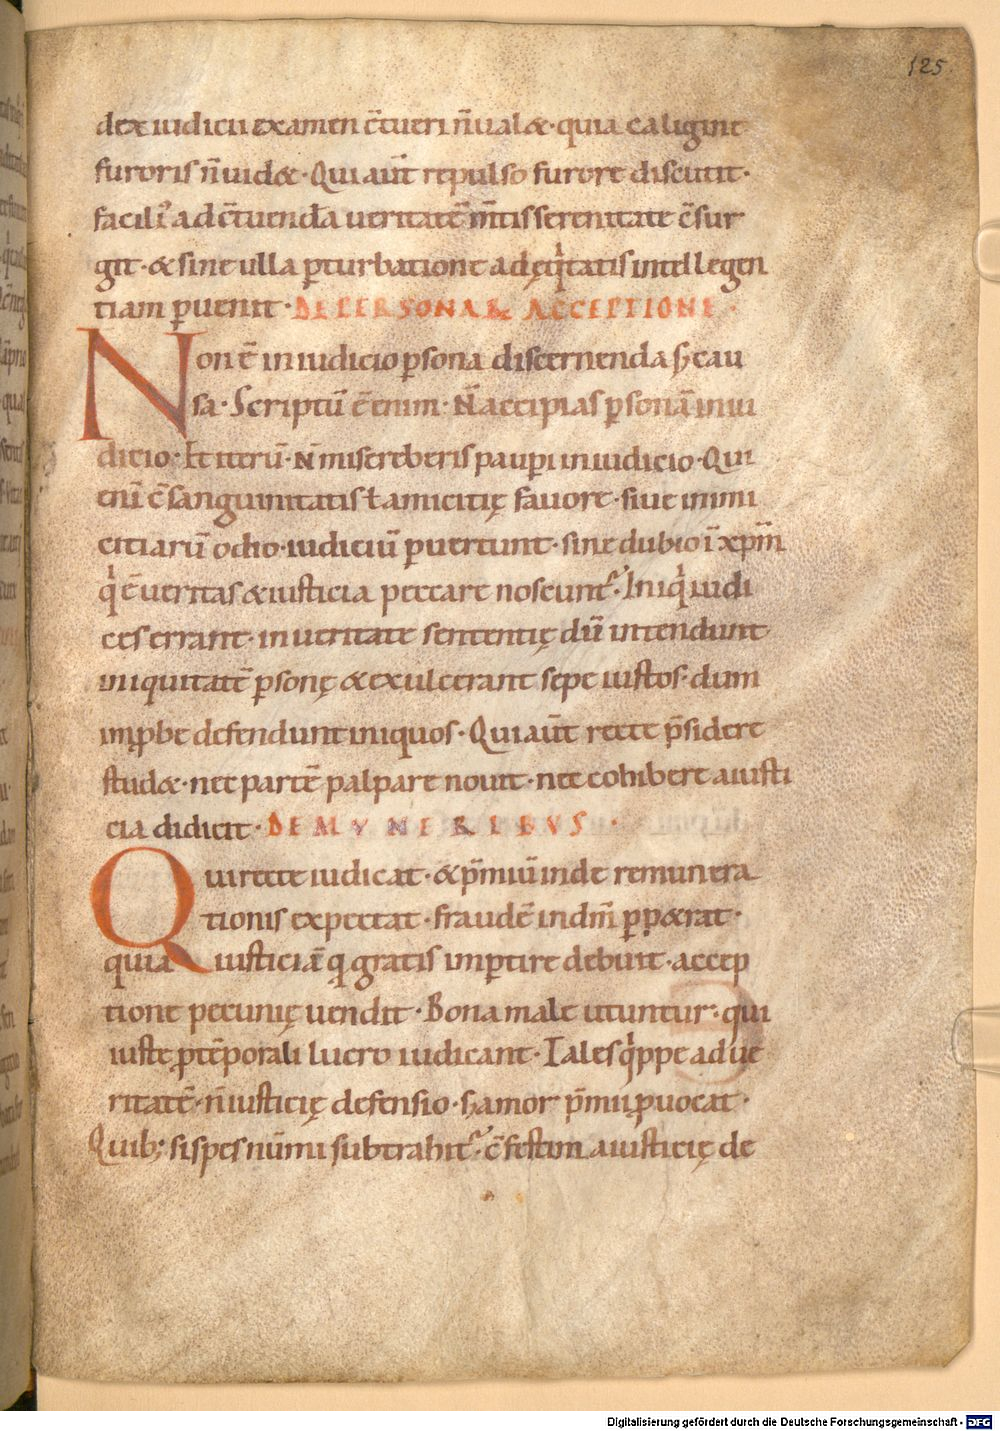 125
dex iudicii examen c̄tueri n̄ ualæ · quia caligine
furoris n̄ uidæ · Qui aut̄ repulso furore discutit ·
facili᷑ ad c̄tuenda ueritatē m̄tis serenitate c̄sur
git · & sine ulla ꝑturbatione ad ęqͥtatis intellegen
tiam ꝑuenit · DE PERSONAR̄ ACCEPTIONE ·
Non ē in iudicio ꝑsona discernenda sꝫ cau
sa · Scriptū ē enim · N̄ accipias ꝑsonā in iu
dicio · Et iterū · N̄ misereberis pauꝑi in iudicio · Qui
eni c̄sanguinitatis ł amicitię fauore · siue inimi
citiarū odio · iudiciū ꝑuertunt · sine dubio ī xp̄m̄
qͥ ē ueritas & iusticia peccare noscunt᷑ · Iniqͥ iudi
ces errant · in ueritate sententię dū intendunt
iniquitatē ꝑsonę & exulcerant sepe iustos · dum
inꝓbe defendunt iniquos · Qui aut̄ recte p̄sidere
studæ · nec partē palpare nouit · nec cohibere a iusti
cia didicit · DE MVNERIBVS ·
Qui recte iudicat · & p̄miū inde remunera
tionis expectat · fraudē in dm̄ ꝑpærat ·
quia iusticiā q̨ gratis inꝑtire debuit · accep
tione pecunię uendit · Bona male utuntur · qui
iuste ꝓ tēporali lucro iudicant · Tales qͥppe ad ue
ritatē · n̄ iusticię defensio · sꝫ amor p̄mii ꝓuocat ·
Quibꝫ si spes nūmi subtrahit᷑ · c̄festim a iusticię de
Digitalisierung gefördert durch die Deutsche Forschungsgemeinschaft - DFG